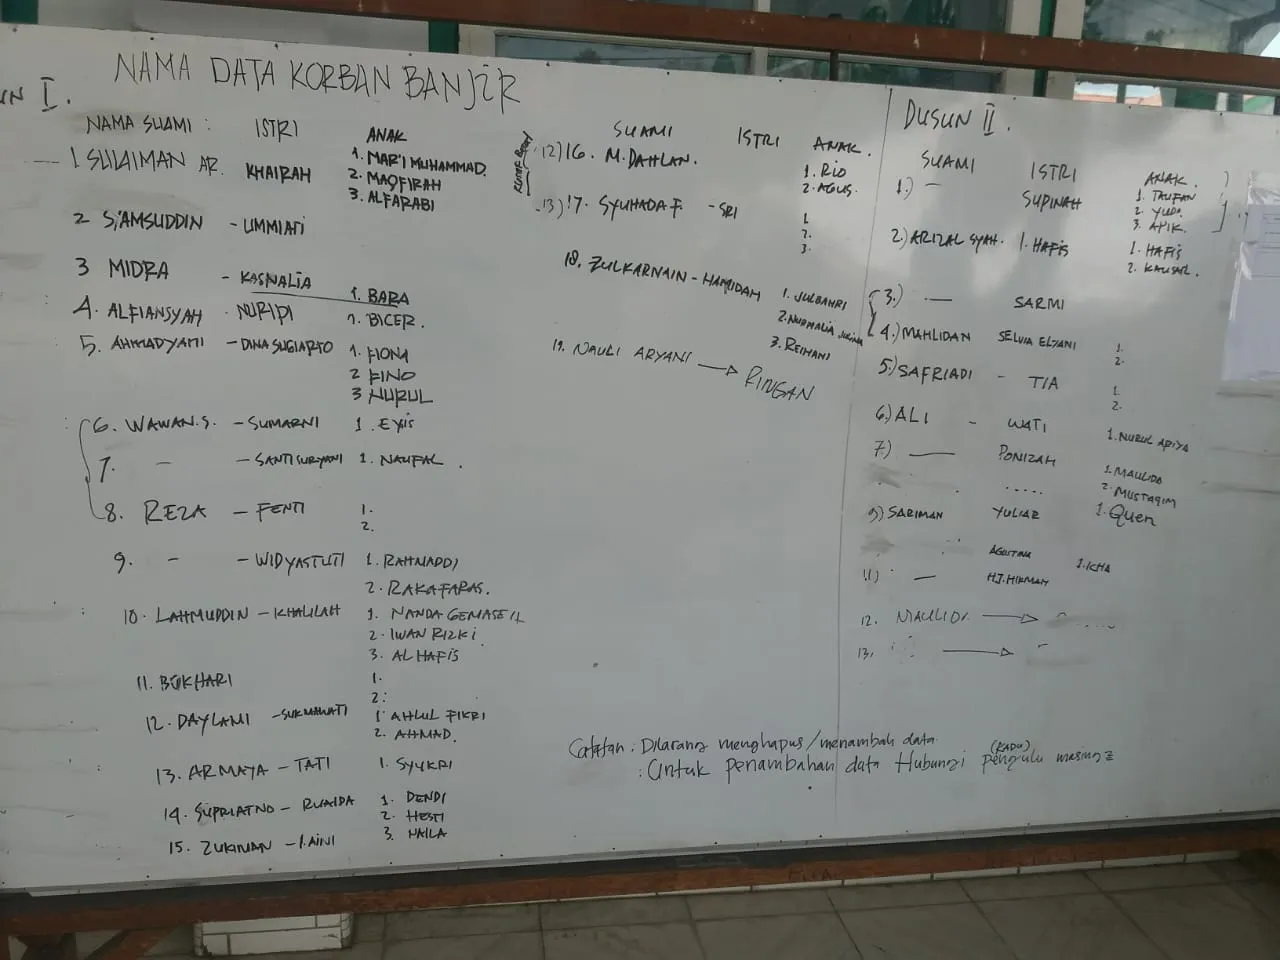 NAMA DATA KORBAN BANJIR
UN I.
NAMA SUAMI : ISTRI ANAK
1 SULAIMAN AR. KHAIRAH 1. MAR'I MUHAMMAD.
2. MAQFIRAH
3. ALFARABI
2 SJAMSUDDIN - UMMIATI
3 MIDRA - KASNALIA 1. BARA
4. ALFIANSYAH - NURIPI 2. BICER.
5. AHMADYANI - DINA SUGIARTO 1. FIONA
2 FINO
3 NURUL
6. WAWAN.S. - SUMARNI 1.
7. - - SANTI SURYANI 1. NAUFAL.
8. REZA - FENTI 1.
2.
9. - - WIDYASTUTI 1. RAHMADDI
2. RAKAFARAS.
10. LAHMUDDIN - KHALILAH 1. NANDA
2. IWAN RIZKI
3. ALHAFIS
11. BUKHARI 1.
2.
12. DAYLAMI - SUKMAWATI 1. AHLUL FIKRI
2. AHMAD.
13. ARMAYA - TATI 1. SYUKRI
14. SUPRIATNO - RUAIDA 1. DENDI
2. HESTI
3. NAILA
15. ZUKIMAN - LAINI
SUAMI ISTRI ANAK.
12) 16. M. DAHLAN. 1. RIO
2. AGUS.
13) 17. SYUHADA F. - SRI 1.
2.
3.
18. ZULKARNAIN - HAMIDAH 1. JULBAHRI
2. NURMALIA
3. REIHANI
19. NAULI ARYANI → RINGAN
DUSUN II.
SUAMI ISTRI ANAK.
1.) - SUPINAH 1. TAUFAN
2. YUDA.
3. APIK.
2.) ARIZAL SYAH. 1. HAFIS 1. HAFIS
2. KAUSAR.
3.) - SARMI
4.) MAHLIDAN SELVIA ELYANI 1.
2.
5.) SAFRIADI - TIA 1.
2.
6.) ALI - WATI 1. NURUL APIYA
7.) - PONIZAH 1. MAULIDA
2. MUSTAQIM
9) SARIMAN YULIAR 1. Quen
AGUSTINA 1. ICHA
11) - HJ. HIKMAH
12. MAULIDI →
13. →
Catatan : Dilarang menghapus/menambah data
: Untuk penambahan data Hubungi pengulu (KADUS) masing2